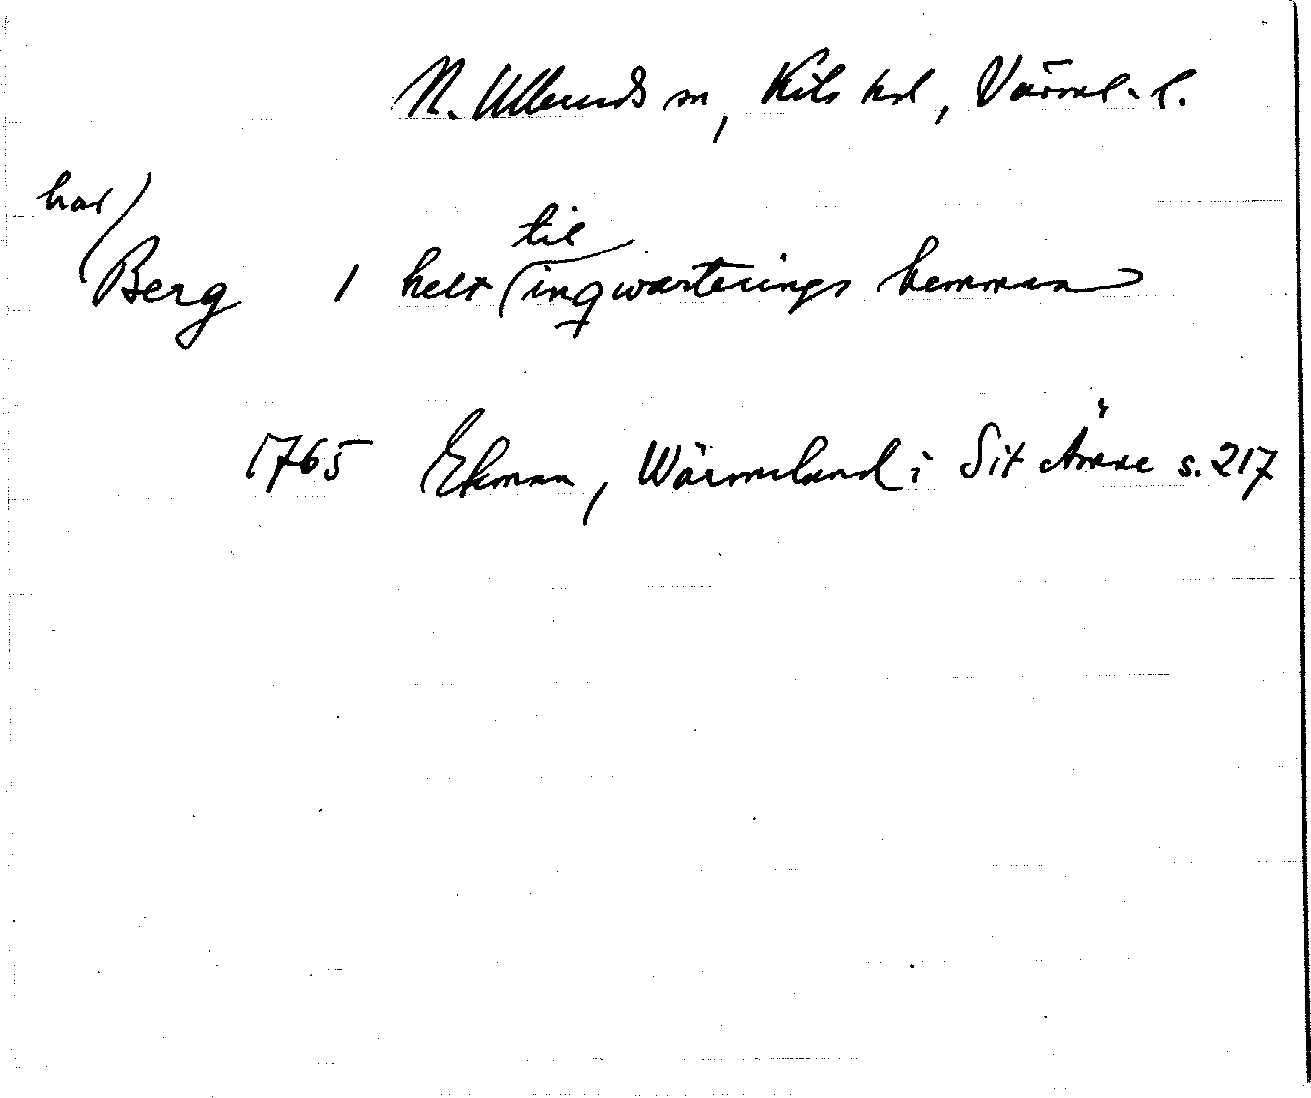 N. Ullerud sn, Kils hd, Värml. l.
har/
til
Berg 1 helt (inqwarterings hemman
1765 Ekman, Wärmeland i Sit Ämne s. 217